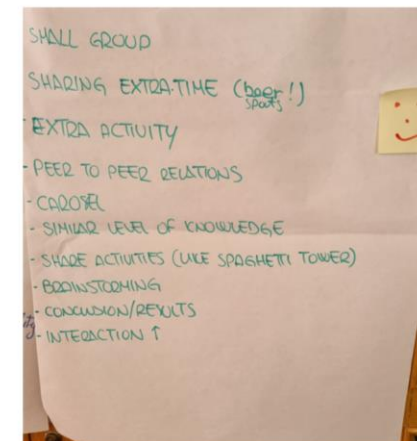 SMALL GROUP
SHARING EXTRA-TIME (beer!)
sports
- EXTRA ACTIVITY
- PEER TO PEER RELATIONS
- CAROSEL
- SIMILAR LEVEL OF KNOWLEDGE
- SHARE ACTIVITIES (LIKE SPAGHETTI TOWER)
- BRAINSTORMING
- CONCLUSION/RESULTS
- INTERACTION ↑